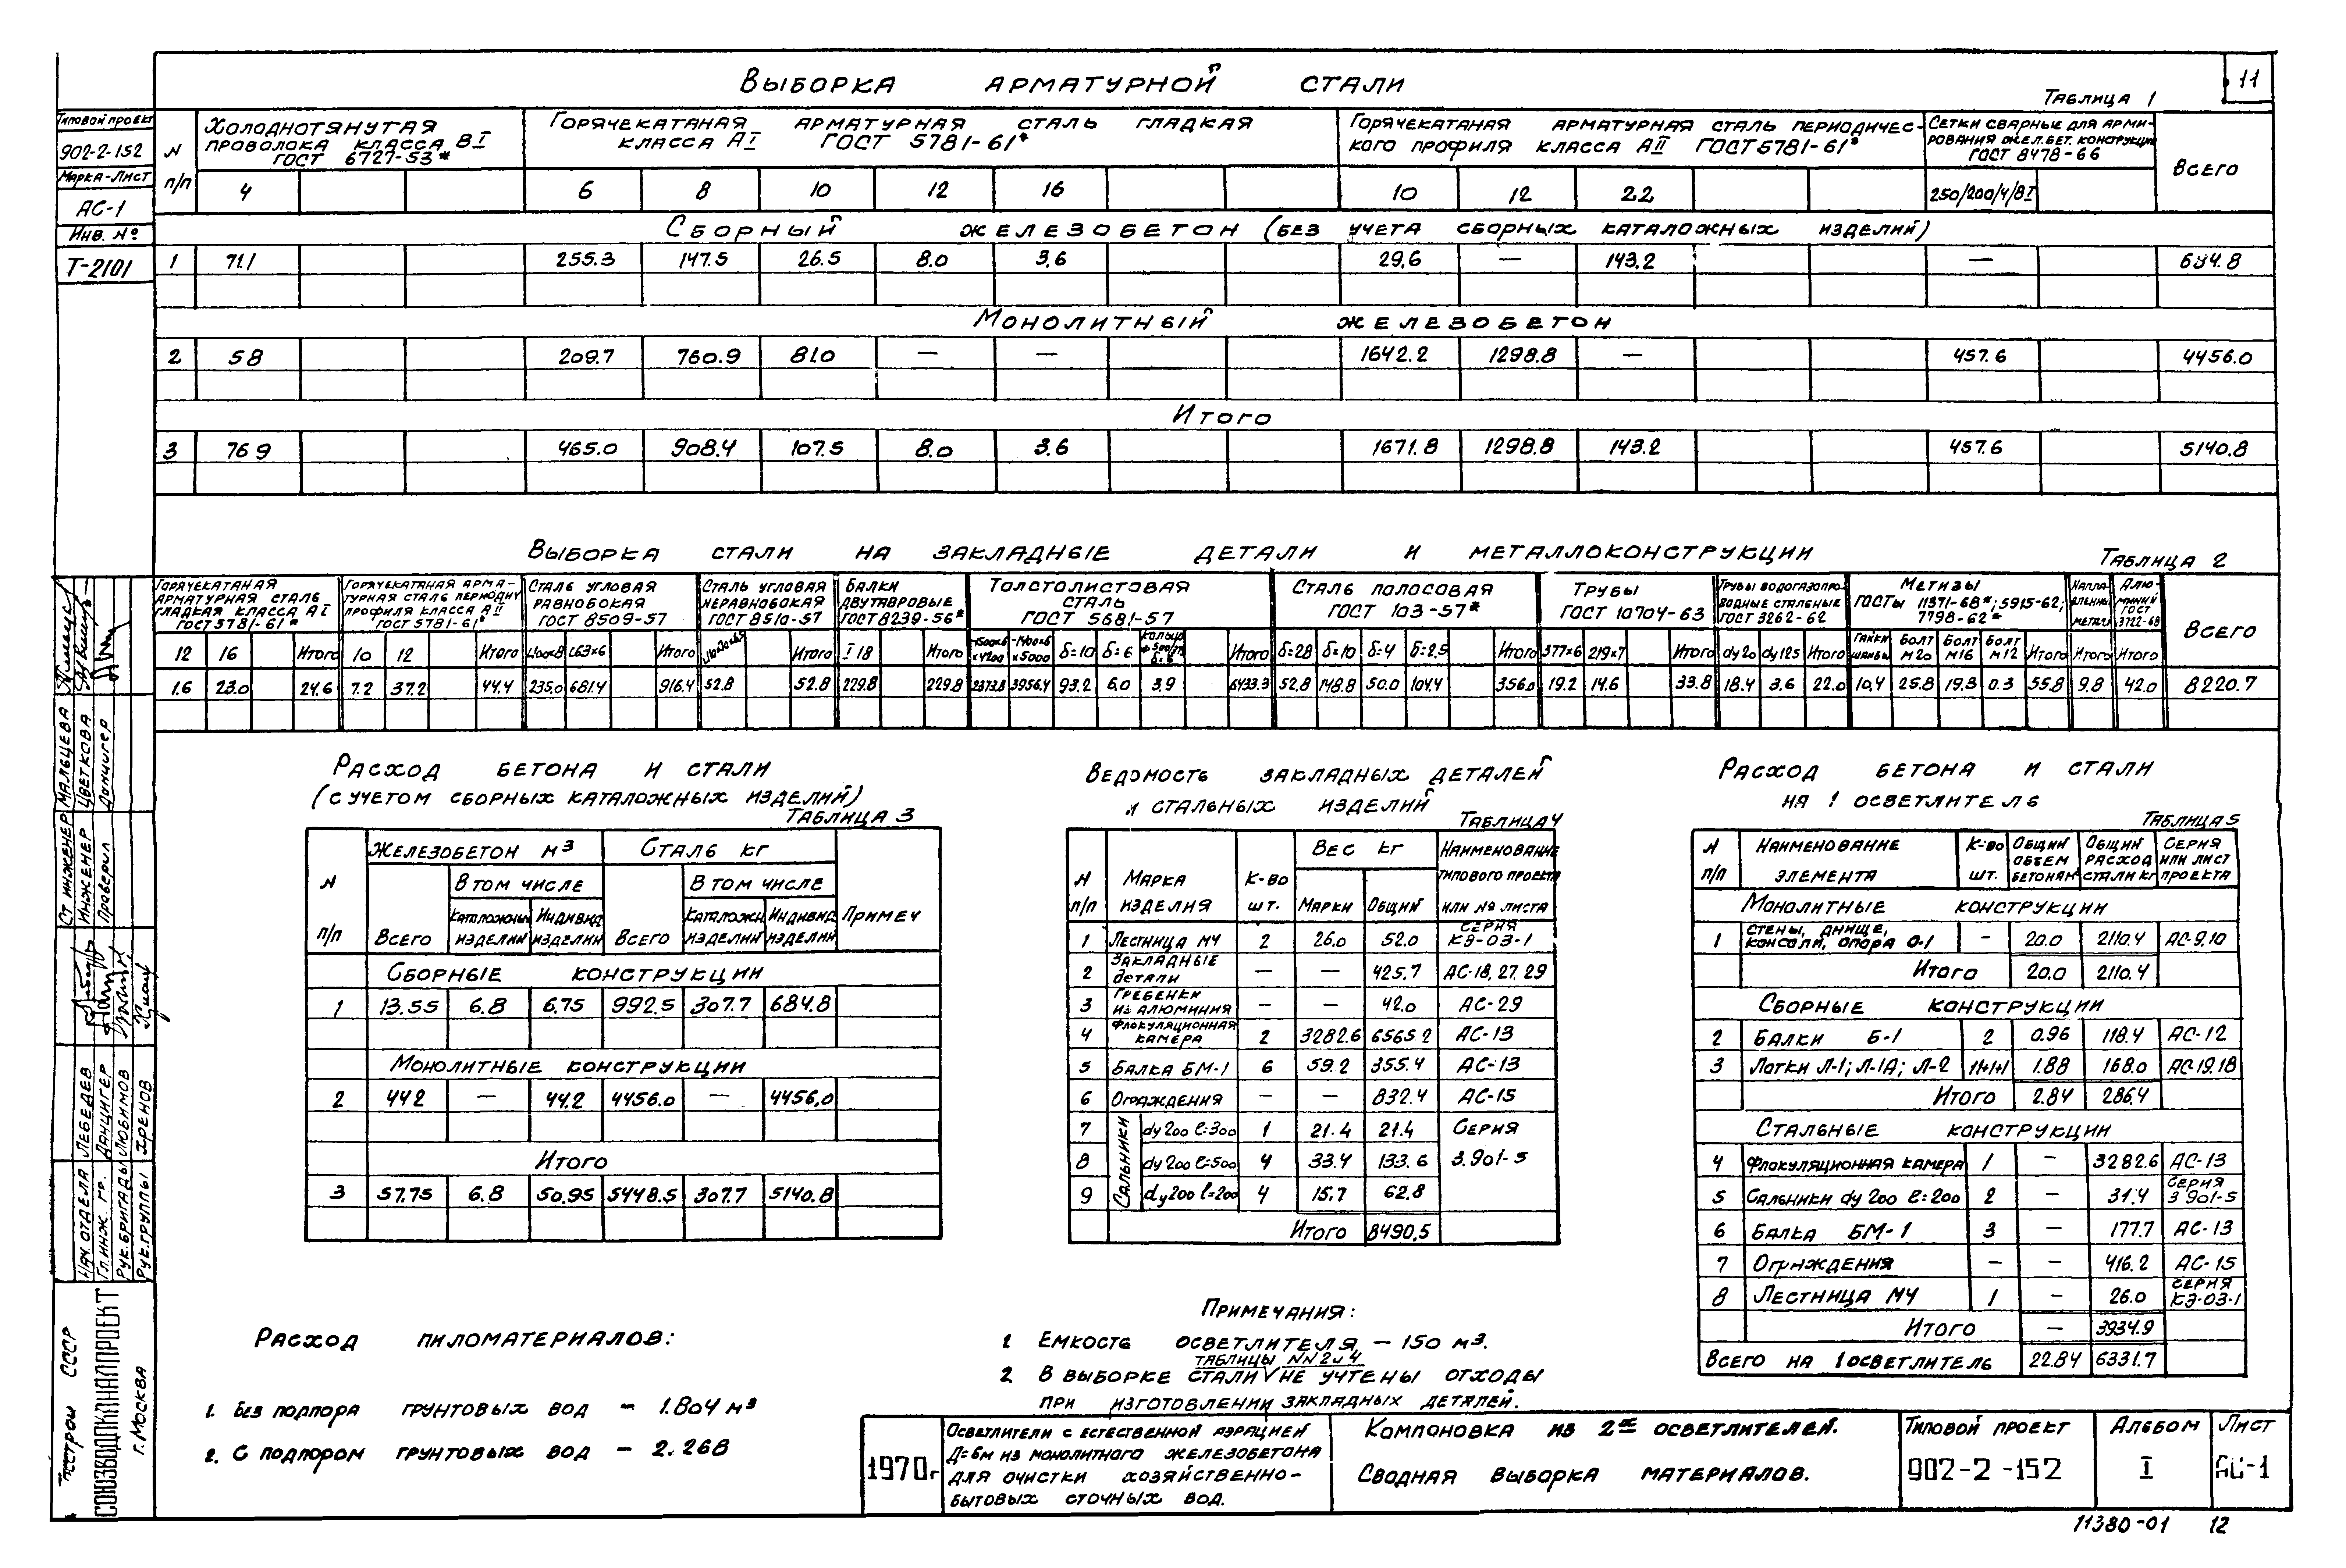 11
Выборка арматурной стали
Таблица 1
Типовой проект
902-2-152
Марка-лист
АС-1
Инв. №
Т-2101
N п/п
Холоднотянутая проволока класса ВI ГОСТ 6727-53*
Горячекатаная арматурная сталь гладкая класса АI ГОСТ 5781-61*
Горячекатаная арматурная сталь периодического профиля класса АII ГОСТ 5781-61*
Сетки сварные для армирования жел.бет. конструкц ГОСТ 8478-66
Всего
4 6 8 10 12 16 10 12 22 250/200/4/ВI
Сборный железобетон (без учета сборных каталожных изделий)
1 71.1 255.3 147.5 26.5 8.0 3.6 29.6 — 143.2 — 684.8
Монолитный железобетон
2 5.8 209.7 760.9 81.0 — — 1642.2 1298.8 — 457.6 4456.0
Итого
3 76.9 465.0 908.4 107.5 8.0 3.6 1671.8 1298.8 143.2 457.6 5140.8
Выборка стали на закладные детали и металлоконструкции
Таблица 2
Горячекатаная арматурная сталь гладкая класса АI ГОСТ 5781-61*
Горячекатаная арматурная сталь периодич профиля класса АII ГОСТ 5781-61*
Сталь угловая равнобокая ГОСТ 8509-57
Сталь угловая неравнобокая ГОСТ 8510-57
Балки двутавровые ГОСТ 8239-56*
Толстолистовая сталь ГОСТ 5681-57
Сталь полосовая ГОСТ 103-57*
Трубы ГОСТ 10704-63
Трубы водогазопроводные стальные ГОСТ 3262-62
Метизы ГОСТы 11371-68*; 5915-62; 7798-62*
Наплавленный металл
Алюминий ГОСТ 3722-68
Всего
12 16 Итого 10 12 Итого L100×8 L63×6 Итого Итого I 18 Итого -1500×6 ×4200 -1400×6 ×5000 δ=10 δ=6 кольцо δ=6 Итого δ=28 δ=10 δ=4 δ=2.5 Итого 377×6 219×7 Итого dy20 dy125 Итого гайки шайбы болт М20 болт М16 болт М12 Итого Итого Итого
1.6 23.0 24.6 7.2 37.2 44.4 235.0 681.4 916.4 52.8 52.8 229.8 229.8 2373.8 3956.4 93.2 6.0 3.9 6433.3 52.8 148.8 50.0 104.4 356.0 19.2 14.6 33.8 18.4 3.6 22.0 10.4 25.8 19.3 0.3 55.8 9.8 42.0 8220.7
Расход бетона и стали
(с учетом сборных каталожных изделий)
Таблица 3
N п/п
Железобетон м³ Сталь кг
В том числе В том числе
Всего Каталожны изделий Индивид изделий Всего Каталожн изделий Индивид изделий Примеч
Сборные конструкции
1 13.55 6.8 6.75 992.5 307.7 684.8
Монолитные конструкции
2 44.2 — 44.2 4456.0 — 4456.0
Итого
3 57.75 6.8 50.95 5448.5 307.7 5140.8
Ведомость закладных деталей
и стальных изделий
Таблица 4
N п/п Марка изделия К-во шт. Вес кг Марки Общий Наименование типового проекта или № листа
1 Лестница М4 2 26.0 52.0 Серия КЭ-03-1
2 Закладные детали — — 425.7 АС-18,27,29
3 Гребенки из алюминия — — 42.0 АС-29
4 Флокуляционная камера 2 3282.6 6565.2 АС-13
5 Балка БМ-1 6 59.2 355.4 АС-13
6 Ограждения — — 832.4 АС-15
Сальники
7 dy200 ℓ=300 1 21.4 21.4 Серия
8 dy200 ℓ=500 4 33.4 133.6 3.901-5
9 dy200 ℓ=200 4 15.7 62.8
Итого 8490.5
Расход бетона и стали
на 1 осветлитель
Таблица 5
N п/п Наименование элемента К-во шт. Общий объем бетона м³ Общий расход стали кг Серия или лист проекта
Монолитные конструкции
1 Стены, днище, консоли, опора О-1 — 20.0 2110.4 АС-9,10
Итого 20.0 2110.4
Сборные конструкции
2 Балки Б-1 2 0.96 118.4 АС-12
3 Лотки Л-1; Л-1А; Л-2 11+1+1 1.88 168.0 АС-19,18
Итого 2.84 286.4
Стальные конструкции
4 Флокуляционная камера 1 — 3282.6 АС-13
5 Сальники dy 200 ℓ=200 2 — 31.4 Серия 3.901-5
6 Балка БМ-1 3 — 177.7 АС-13
7 Ограждения — — 416.2 АС-15
8 Лестница М4 1 — 26.0 Серия КЭ-03-1
Итого — 3934.9
Всего на 1 осветлитель 22.84 6331.7
Расход пиломатериалов:
1. Без подпора грунтовых вод — 1.804 м³
2. С подпором грунтовых вод — 2.268
Примечания:
1. Емкость осветлителя — 150 м³.
таблицы NN 2 и 4
2. В выборке стали не учтены отходы
при изготовлении закладных деталей.
Ст инженер Мальцева
Инженер Цветкова
Проверил Данцигер
Нач. отдела Лебедев
Гл. инж. гр. Данцигер
Рук. бригады Любимов
Рук. группы Хренов
Госстрой СССР
СОЮЗВОДОКАНАЛПРОЕКТ
г. Москва
1970г
Осветлители с естественной аэрацией
Д=6м из монолитного железобетона
для очистки хозяйственно-
бытовых сточных вод.
Компоновка из 2ˣ осветлителей.
Сводная выборка материалов.
Типовой проект
902-2-152
Альбом
I
Лист
АС-1
11380-01 12